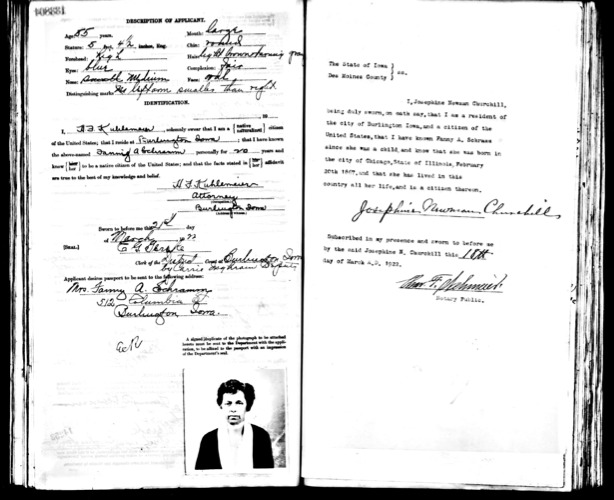 DESCRIPTION OF APPLICANT.
Age: 55 years. Mouth: large
Stature: 5 feet, 4½ inches, Eng. Chin: round
Forehead: High Hair: light brown turning gray
Eyes: blue Complexion: fair
Nose: smooth Medium Face: oval
Distinguishing marks: smaller than right
IDENTIFICATION.
I, H. F. Kuhlemeier, solemnly swear that I am a native citizen
of the United States; that I reside at Burlington Iowa; that I have known
the above-named Fanny A Schramm personally for years and
know to be a native citizen of the United States; and that the facts stated in affidavit
are true to the best of my knowledge and belief.
H F Kuhlemeier
Attorney
Burlington Iowa
Sworn to before me this day
of March, 19
[SEAL.]
Clerk of the District Court at Burlington Iowa
by Carrie Deputy
Applicant desires passport to be sent to the following address:
Mrs. Fanny A. Schramm
512 Columbia St
Burlington Iowa.
A signed duplicate of the photograph to be attached
hereto must be sent to the Department with the appli-
cation, to be affixed to the passport with an impression
of the Department's seal.
The State of Iowa )
Des Moines County ) ss.
I, Josephine Newman Churchill,
being duly sworn, on oath say, that I am a resident of
the city of Burlington Iowa, and a citizen of the
United States, that I have known Fanny A. Schramm
since she was a child, and know that she was born in
the city of Chicago, State of Illinois, February
20th and that she has lived in this
country all her life, and is a citizen thereof.
Josephine Newman Churchill
Subscribed in my presence and sworn to before me
by the said Josephine N. Churchill this 18th
day of March A.D. 1922.
Notary Public.